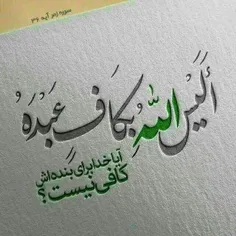 سوره زمر آیه ۳۶
أَلَيْسَ اللَّهُ بِكَافٍ عَبْدَهُ
آیا خدا برای بنده‌اش
کافی نیست؟